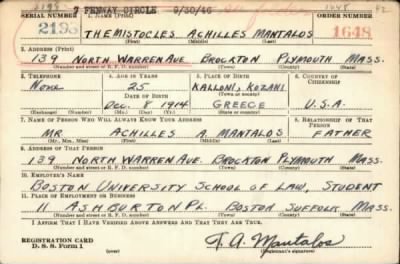 7 FENWAY CIRCLE 9/30/46
SERIAL NUMBER 1. NAME (Print) ORDER NUMBER
2193 THEMISTOCLES ACHILLES MANTALOS 1648
(First) (Middle) (Last)
3. ADDRESS (Print)
139 NORTH WARREN AVE BROCKTON PLYMOUTH MASS.
(Number and street or R. F. D. number) (Town) (County) (State)
2. TELEPHONE 4. AGE IN YEARS 5. PLACE OF BIRTH 6. COUNTRY OF CITIZENSHIP
NONE 25 KALLONI, KOZANI
DATE OF BIRTH (Town or county)
DEC. 8 1914 GREECE U.S.A.
(Mo.) (Day) (Yr.) (State or country)
7. NAME OF PERSON WHO WILL ALWAYS KNOW YOUR ADDRESS 8. RELATIONSHIP OF THAT PERSON
MR. ACHILLES A. MANTALOS FATHER
(Mr., Mrs., Miss) (First) (Middle) (Last)
9. ADDRESS OF THAT PERSON
139 NORTH WARREN AVE. BROCKTON PLYMOUTH MASS.
(Number and street or R. F. D. number) (Town) (County) (State)
10. EMPLOYER'S NAME
BOSTON UNIVERSITY SCHOOL OF LAW, STUDENT
11. PLACE OF EMPLOYMENT OR BUSINESS
11 ASHBURTON PL. BOSTON SUFFOLK MASS.
(Number and street or R. F. D. number) (Town) (County) (State)
I AFFIRM THAT I HAVE VERIFIED ABOVE ANSWERS AND THAT THEY ARE TRUE.
REGISTRATION CARD
D. S. S. Form 1 (over) T. A. Mantalos
(Registrant's signature)